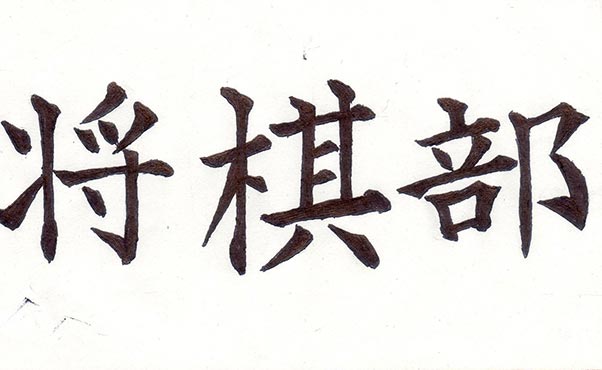 将棋部